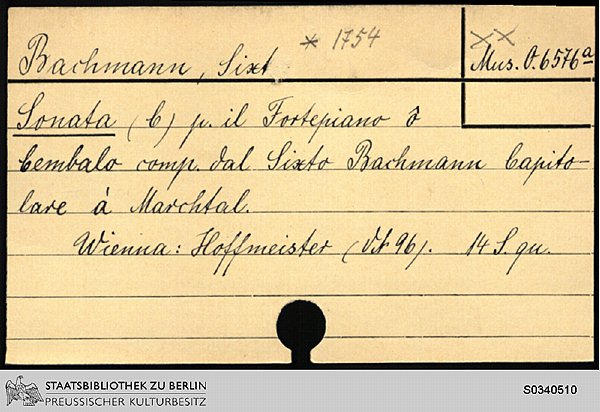 Bachmann, Sixt * 1754
xx
Mus. O. 6576a
Sonata (C) p. il Fortepiano ò
Cembalo comp. dal Sixto Bachmann Capito-
lare à Marchtal.
Wienna: Hoffmeister (VN 96). 14 S. qu.
STAATSBIBLIOTHEK ZU BERLIN
PREUSSISCHER KULTURBESITZ
S0340510